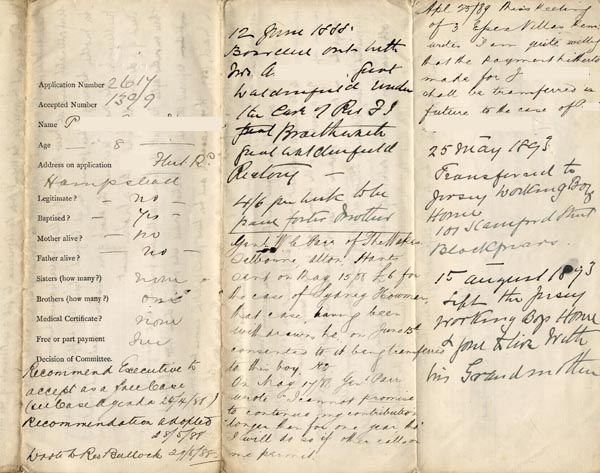 Application Number 2617
Accepted Number 1309
Name P
Age — 8 —
Address on application Flut Rd
Hampstead
Legitimate? — no —
Baptised? — Yes —
Mother alive? — no
Father alive? — no —
Sisters (how many?) none
Brothers (how many?) one
Medical Certificate? none
Free or part payment free
Decision of Committee.
Recommend Executive to
accept as a free case
(see Case Agenda 24/4/88)
Recommendation adopted
28/5/88
Wrote to Rev Bullock 29/5/88
12 June 1888.
Boarded out with
Mrs A Great
Waldingfield under
the Care of Rev F J
Braithwaite
Great Waldingfield
Rectory —
4/6 per week to be
paid foster Mother
Genl. W C Parr of The
Melbourne, Herts
sent on May 15/88 £6 for
the case of Sydney
that case having been
withdrawn he on June 13th
consented to it being transferred
to this boy.
On May 17/88 Gen. Parr
wrote "I cannot promise
to continue my contribution
longer than for one year tho'
I will do so if other calls on
me permit.
Apl 25/89 Miss Keeling
of 3 Epea Villas
writes I am quite willing
that the payment hitherto
made for J
shall be transferred in
future to the case of A
25 May 1893
Transferred to
Jersey Working Boys
Home
101 Stamford Street
Blackfriars.
15 August 1893
Left the Jersey
Working Boys Home
& gone to live with
his Grandmother